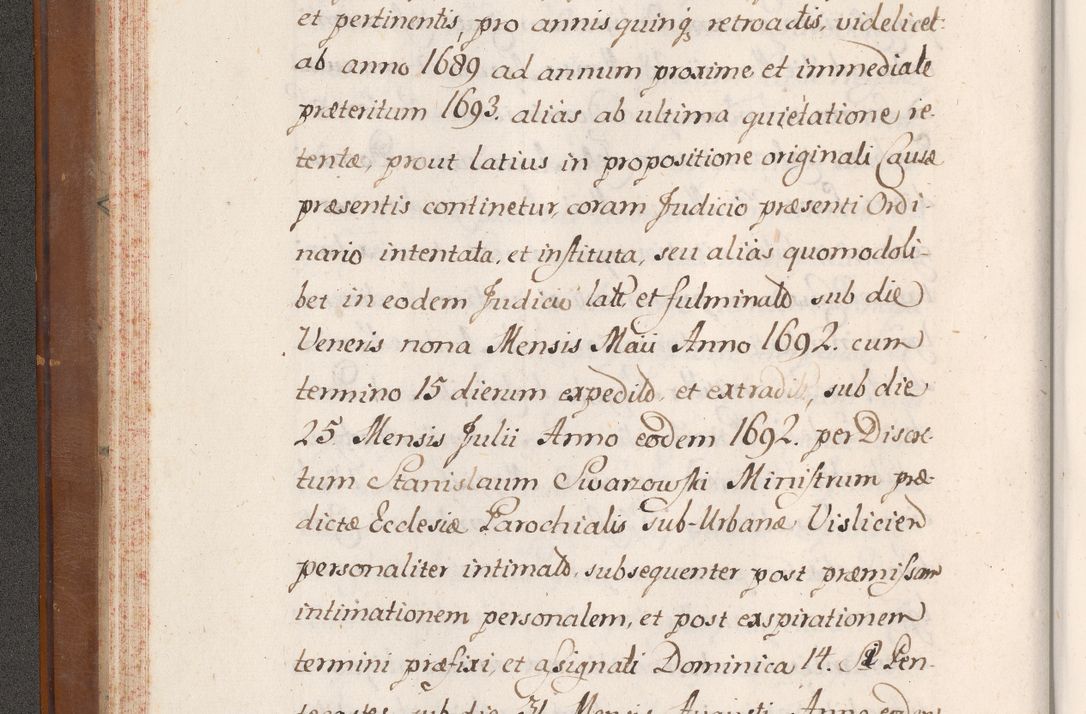 et pertinentis, pro annis quinq̨ retroactis, videlicet
ab anno 1689 ad annum proxime et immediate
præteritum 1693. aliàs ab ultima quietatione re-
tentæ, prout latius in propositione originali Causæ
præsentis continetur, coram Judicio præsenti Ordi-
nario intentata, et instituta, seu aliàs quomodoli-
bet in eodem Judicio latt et fulminatt sub die
Veneris nona Mensis Maii Anno 1692. cum
termino 15 dierum expeditt, et extradit, sub die
25 Mensis Julii Anno eodem 1692. per Discre-
tum Stanislaum Swarzowski Ministrum præ-
dictæ Ecclesiæ Parochialis sub-Urbanæ Vislicien
personaliter intimatt, subsequenter post præmissam
intimationem personalem, et post exspirationem
termini præfixi, et assignati Dominica 14. Pen-
tecostes sub die 31 Mensis Augusti Anno eodem